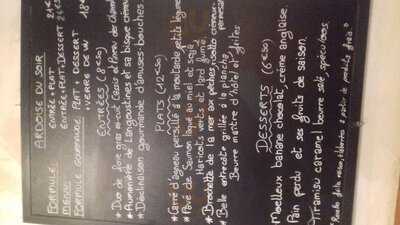 ARDOISE DU SOIR
FORMULE ENTRÉE + PLAT 21€
MENU ENTRÉE + PLAT + DESSERT
FORMULE GOURMANDE PLAT + DESSERT
+ VERRE DE VIN 18€
ENTRÉES (8€50)
* Duo de foie gras mi-cuit Cacao et Poivre des
* de Langoustines et sa bisque
* Déclinaison gourmande d'amuses-bouches
PLATS (12€50)
* Carré d'agneau persillé à la moutarde, petits légumes
* Pavé de Saumon laqué au miel et soja,
Haricots verts et lard fumé.
* Brochette de la mer aux pêches, risotto crémeux
* Belle entrecôte grillée à la plancha,
Beurre maître d'hôtel et frites
DESSERTS (6€50)
Moelleux banane chocolat, crème anglaise.
Pain perdu et ses fruits de saison.
Tiramisu caramel beurre salé, spéculoos.
* Recette faite maison, élaborée à partir de produits frais *